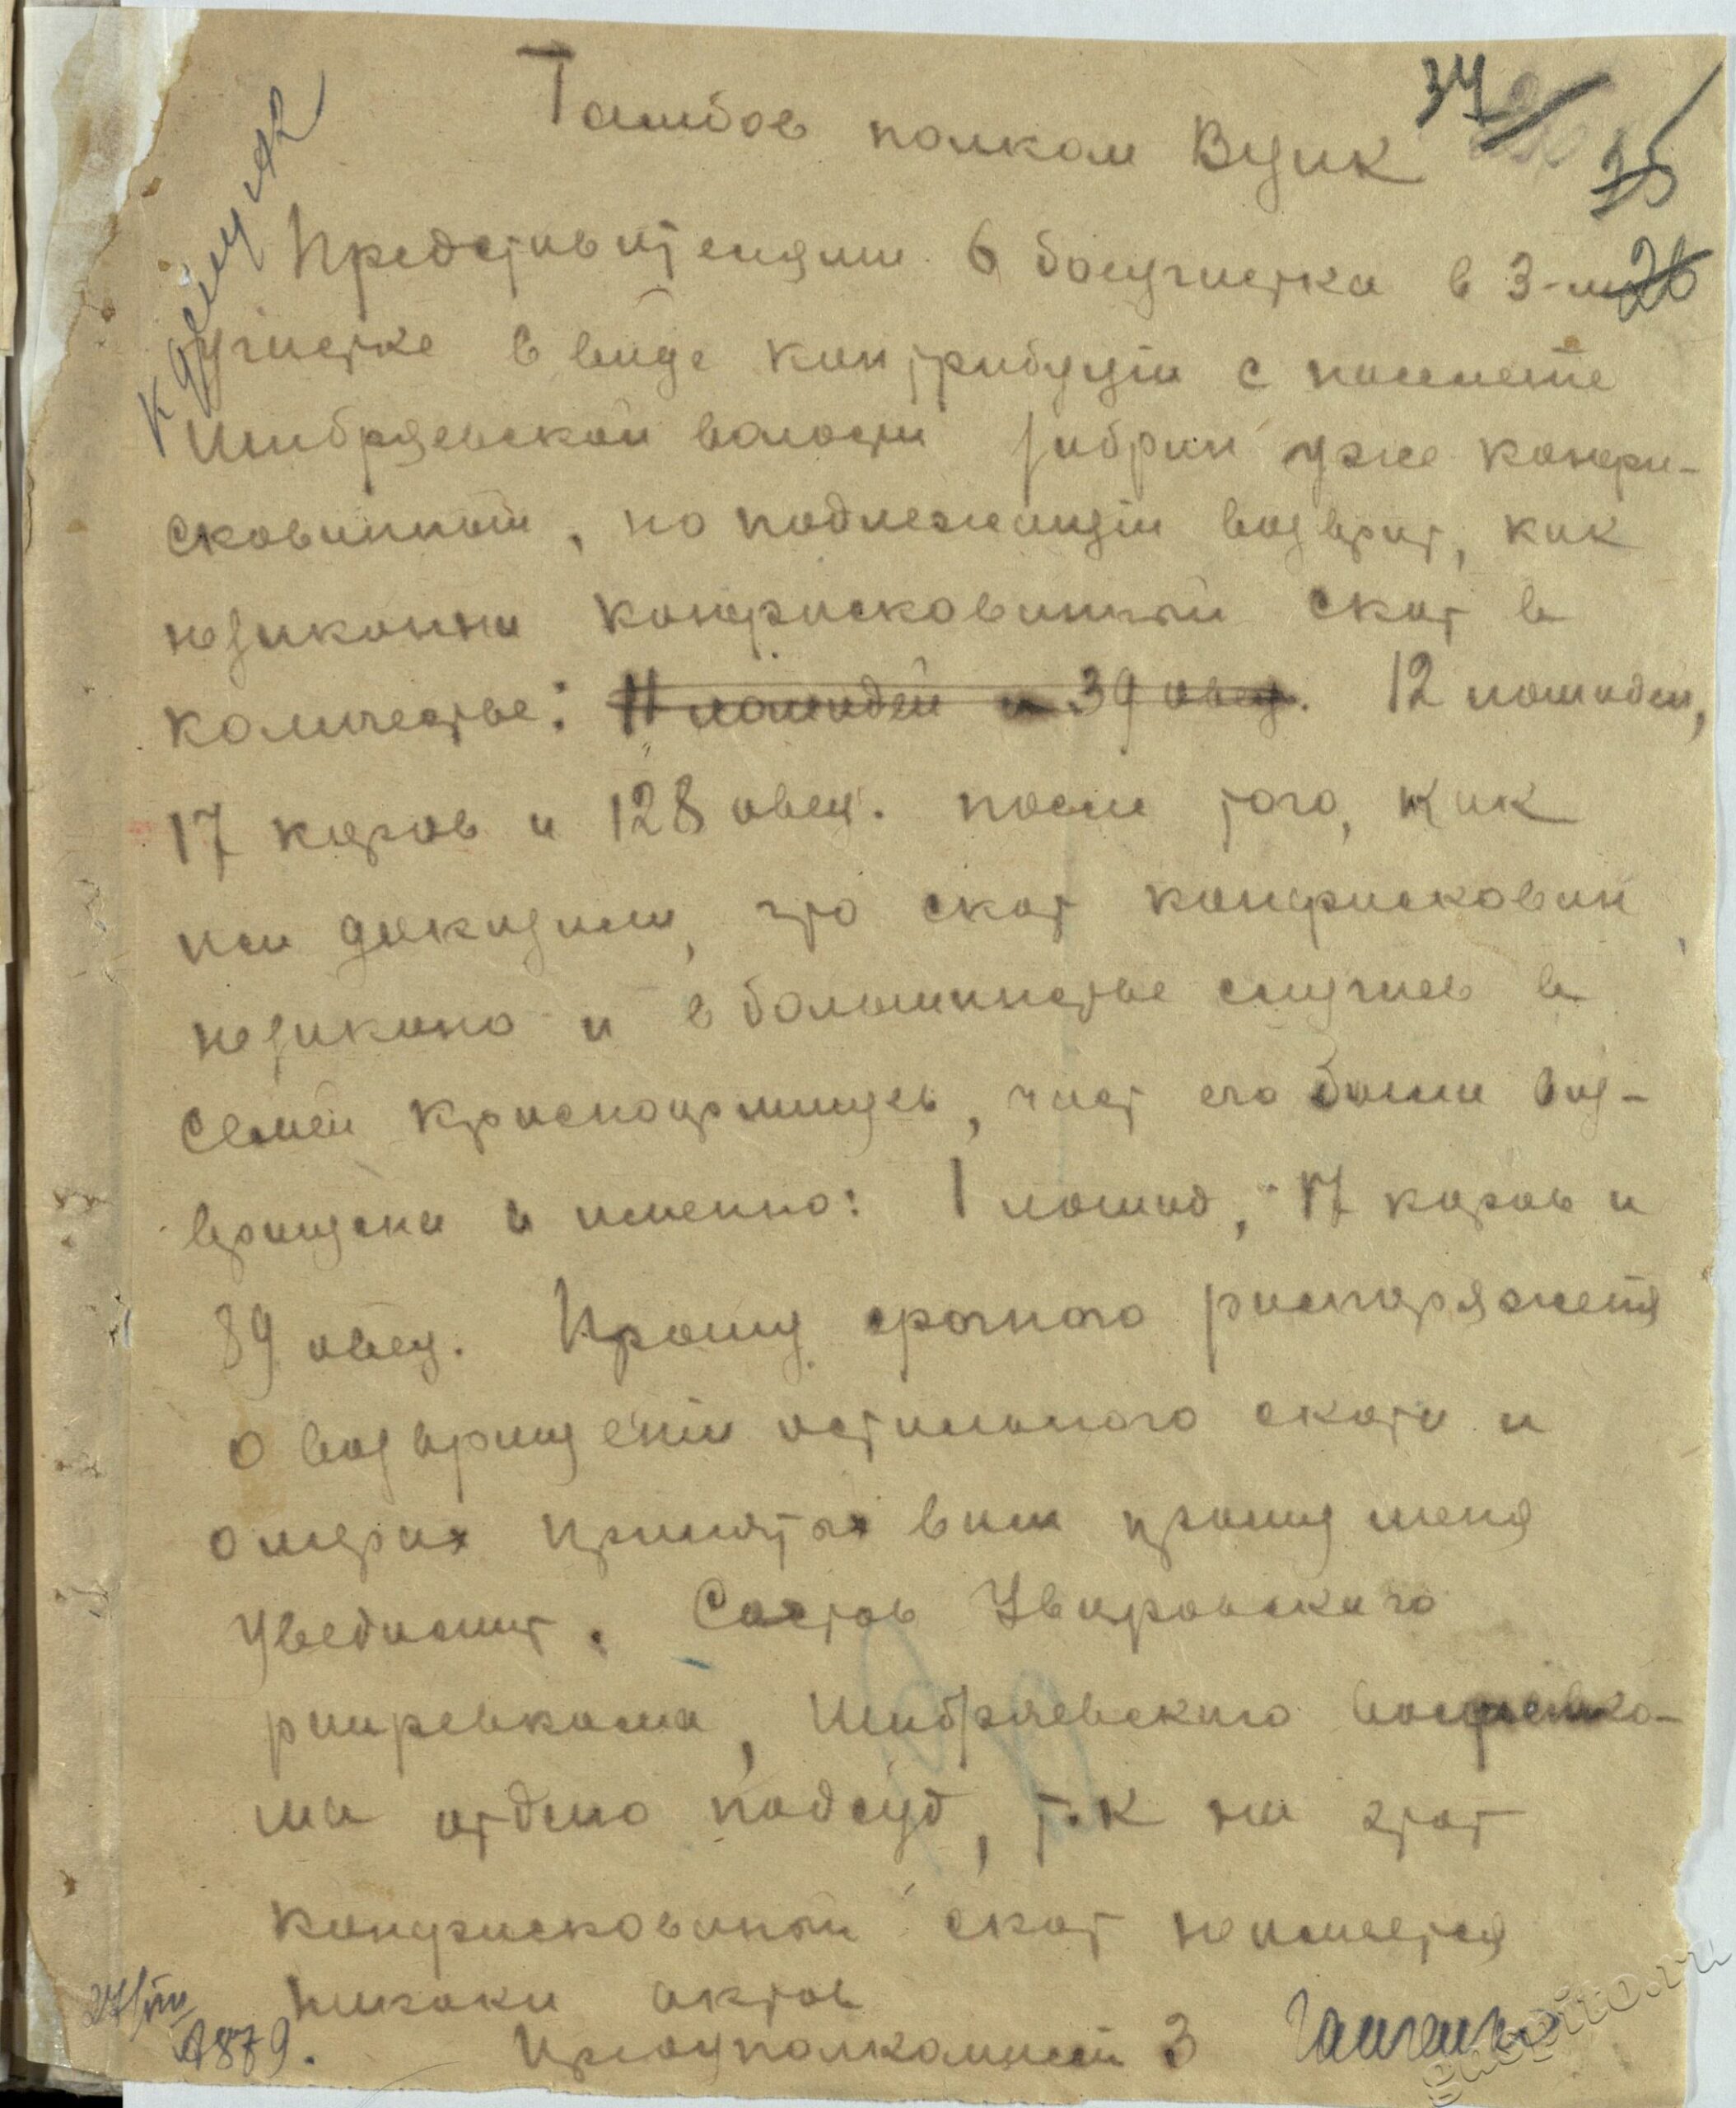 37 25
26
к делу 142
Тамбов полком Вцик
Представителями 6 боеучастка в 3-м
участке в виде контрибуции с
Шибряевской волости забран уже конфи-
скованный, но подлежащий возврат, как
незаконна конфискованный скот в
количестве: 11 лошадей и 39 овец. 12 лошадей,
17 коров и 128 овец. после того, как
мы доказали, что скот конфискован
незакано и в большинстве случаев в
семей красноармицев, част его были воз-
вращена а именно: 1 лошад, 17 коров и
89 овец. Прошу срочного распоряжения
о возвращении остального скота и
о мерах принятых вами прошу меня
уведомит. Состов Уваровскаго
райревкома, Шибряевского волревко-
ма отдано подсуд, т.к на этот
конфискованый скот неимеется
никаки актов
27/VII
1879.
Предуполкомисси 3
gaspito.ru